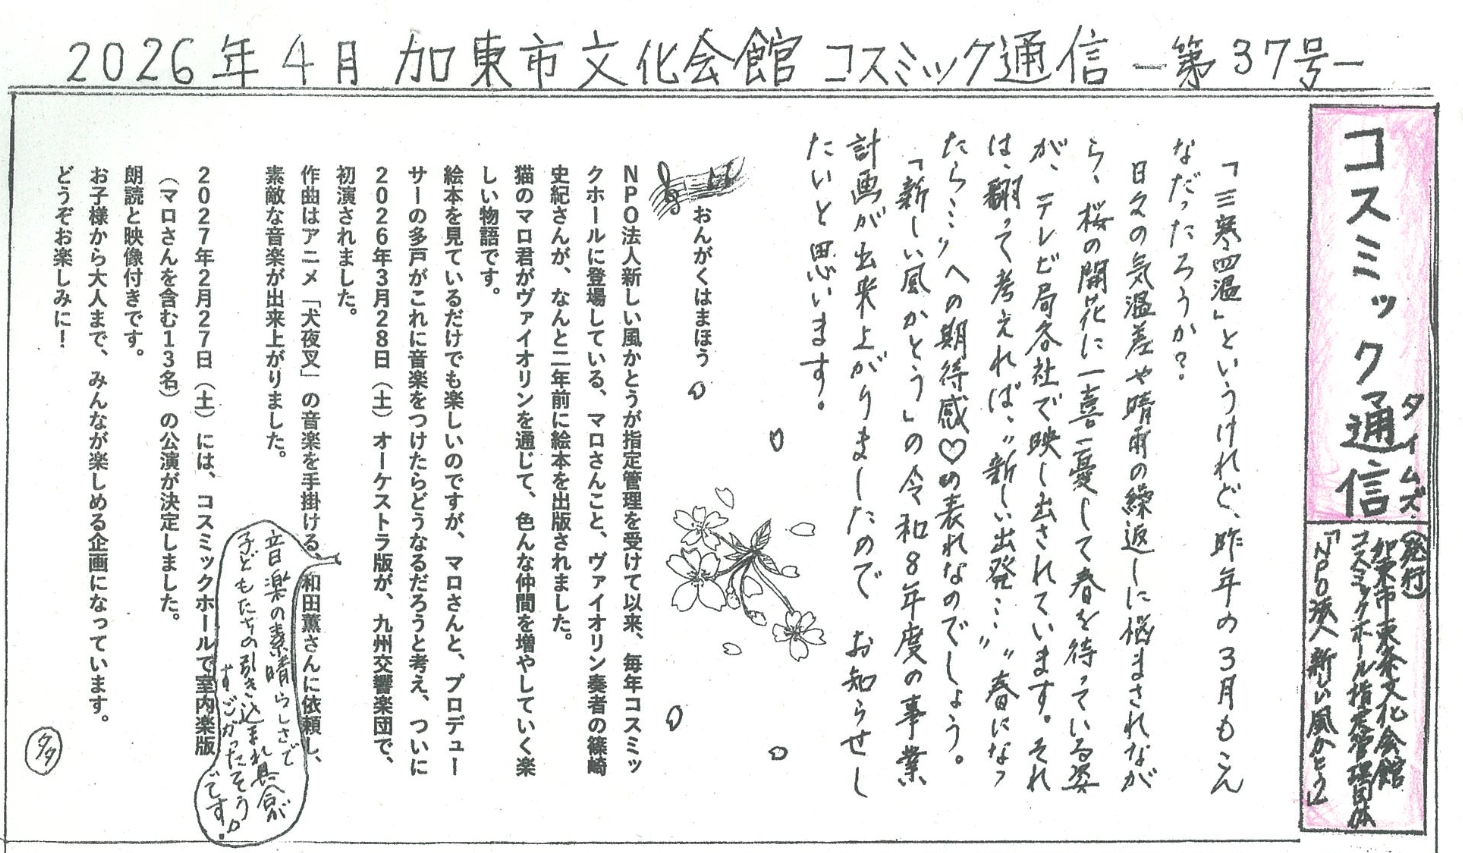 2026年4月 加東市文化会館 コスミック通信 ー第37号ー
コスミック通信
タイムズ
(発行)
加東市東条文化会館
コスミックホール指定管理団体
「NPO法人新しい風かとう」
「三寒四温」というけれど、昨年の3月もこん
なだったろうか?
日々の気温差や晴雨の繰返しに悩まされなが
ら、桜の開花に一喜一憂して春を待っている姿
が、テレビ局各社で映し出されています。それ
は、翻って考えれば、〝新しい出発…〟〝春になっ
たら…〟への期待感♡の表れなのでしょう。
「新しい風かとう」の令和8年度の事業
計画が出来上がりましたので お知らせし
たいと思います。
おんがくはまほう
NPO法人新しい風かとうが指定管理を受けて以来、毎年コスミッ
クホールに登場している、マロさんこと、ヴァイオリン奏者の篠崎
史紀さんが、なんと二年前に絵本を出版されました。
猫のマロ君がヴァイオリンを通じて、色んな仲間を増やしていく楽
しい物語です。
絵本を見ているだけでも楽しいのですが、マロさんと、プロデュー
サーの多戸がこれに音楽をつけたらどうなるだろうと考え、ついに
2026年3月28日(土)オーケストラ版が、九州交響楽団で、
初演されました。
作曲はアニメ「犬夜叉」の音楽を手掛ける、和田薫さんに依頼し、
素敵な音楽が出来上がりました。
音楽の素晴らしさで
子どもたちの引き込まれ具合が
すごかったそう
です!
2027年2月27日(土)には、コスミックホールで室内楽版
(マロさんを含む13名)の公演が決定しました。
朗読と映像付きです。
お子様から大人まで、みんなが楽しめる企画になっています。
どうぞお楽しみに!
タタ